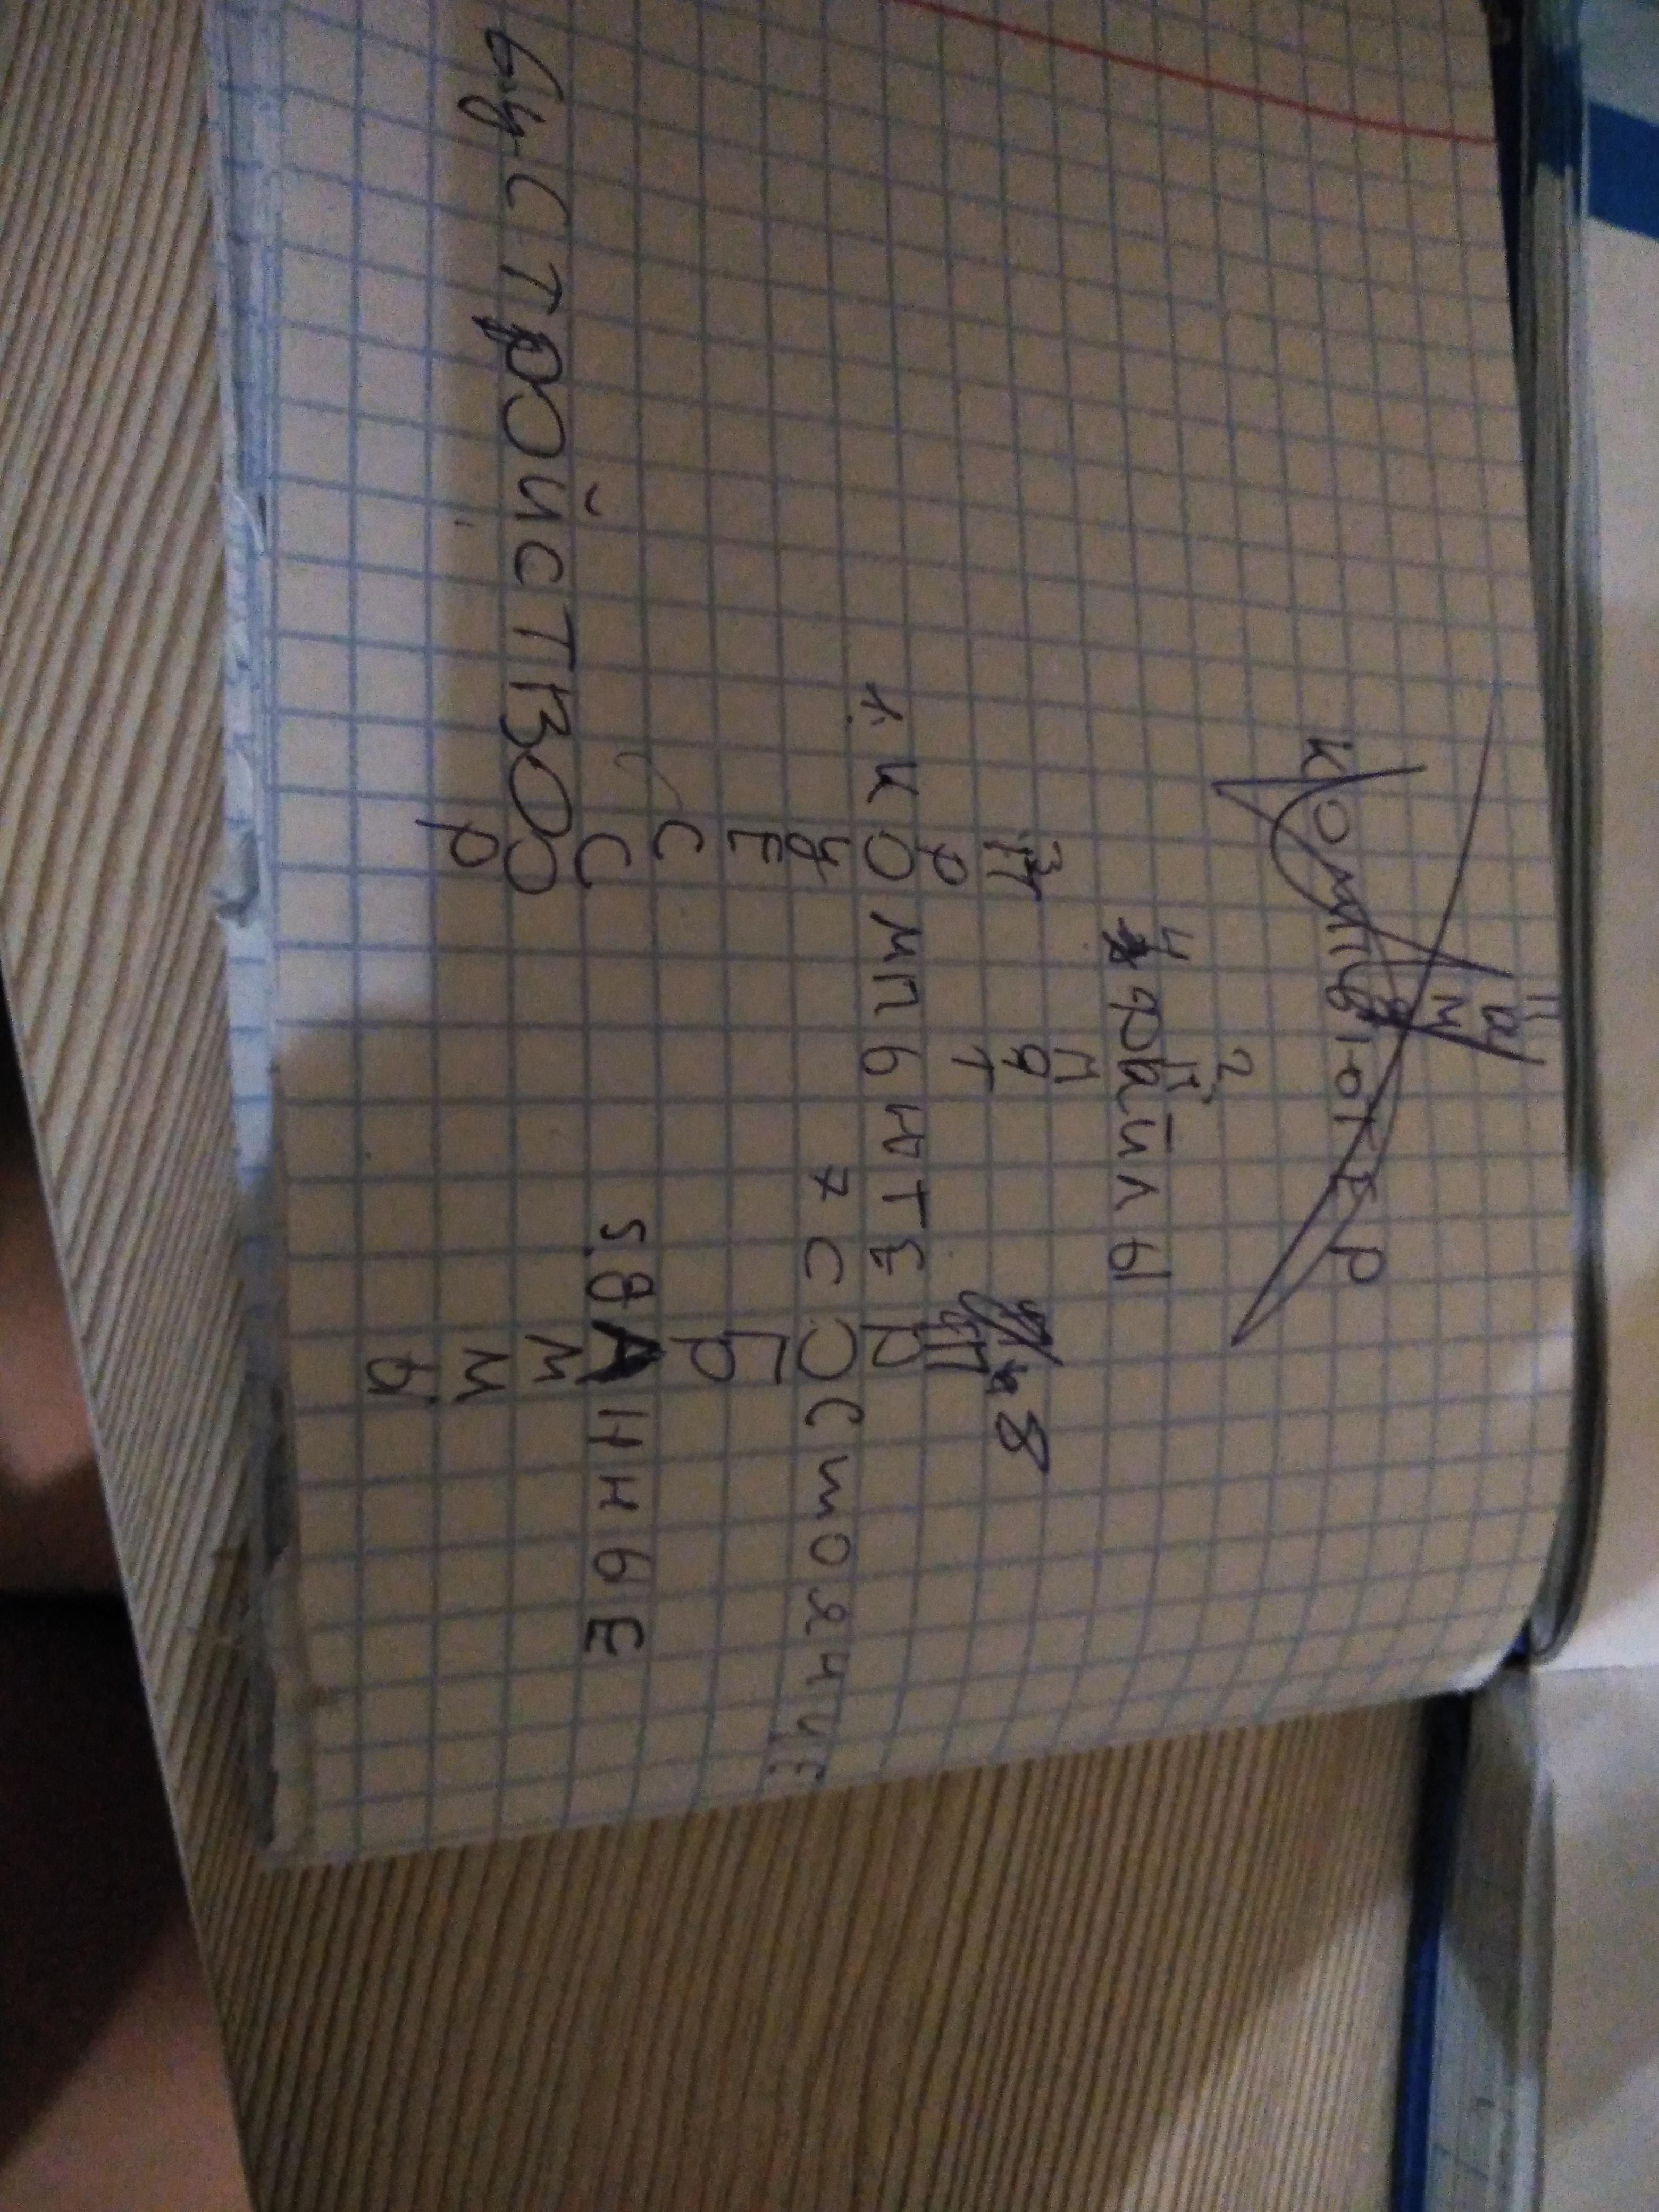 компьютер
2
П
4 файлы
М
3 Я 8
П Т
Р П
1. КОМПЬЮТЕР
Ц 7 СОСТОЯНИЕ
Е Г
С Р
С 5. ДАННЫЕ
6 УСТРОЙСТВО М
Р М
А